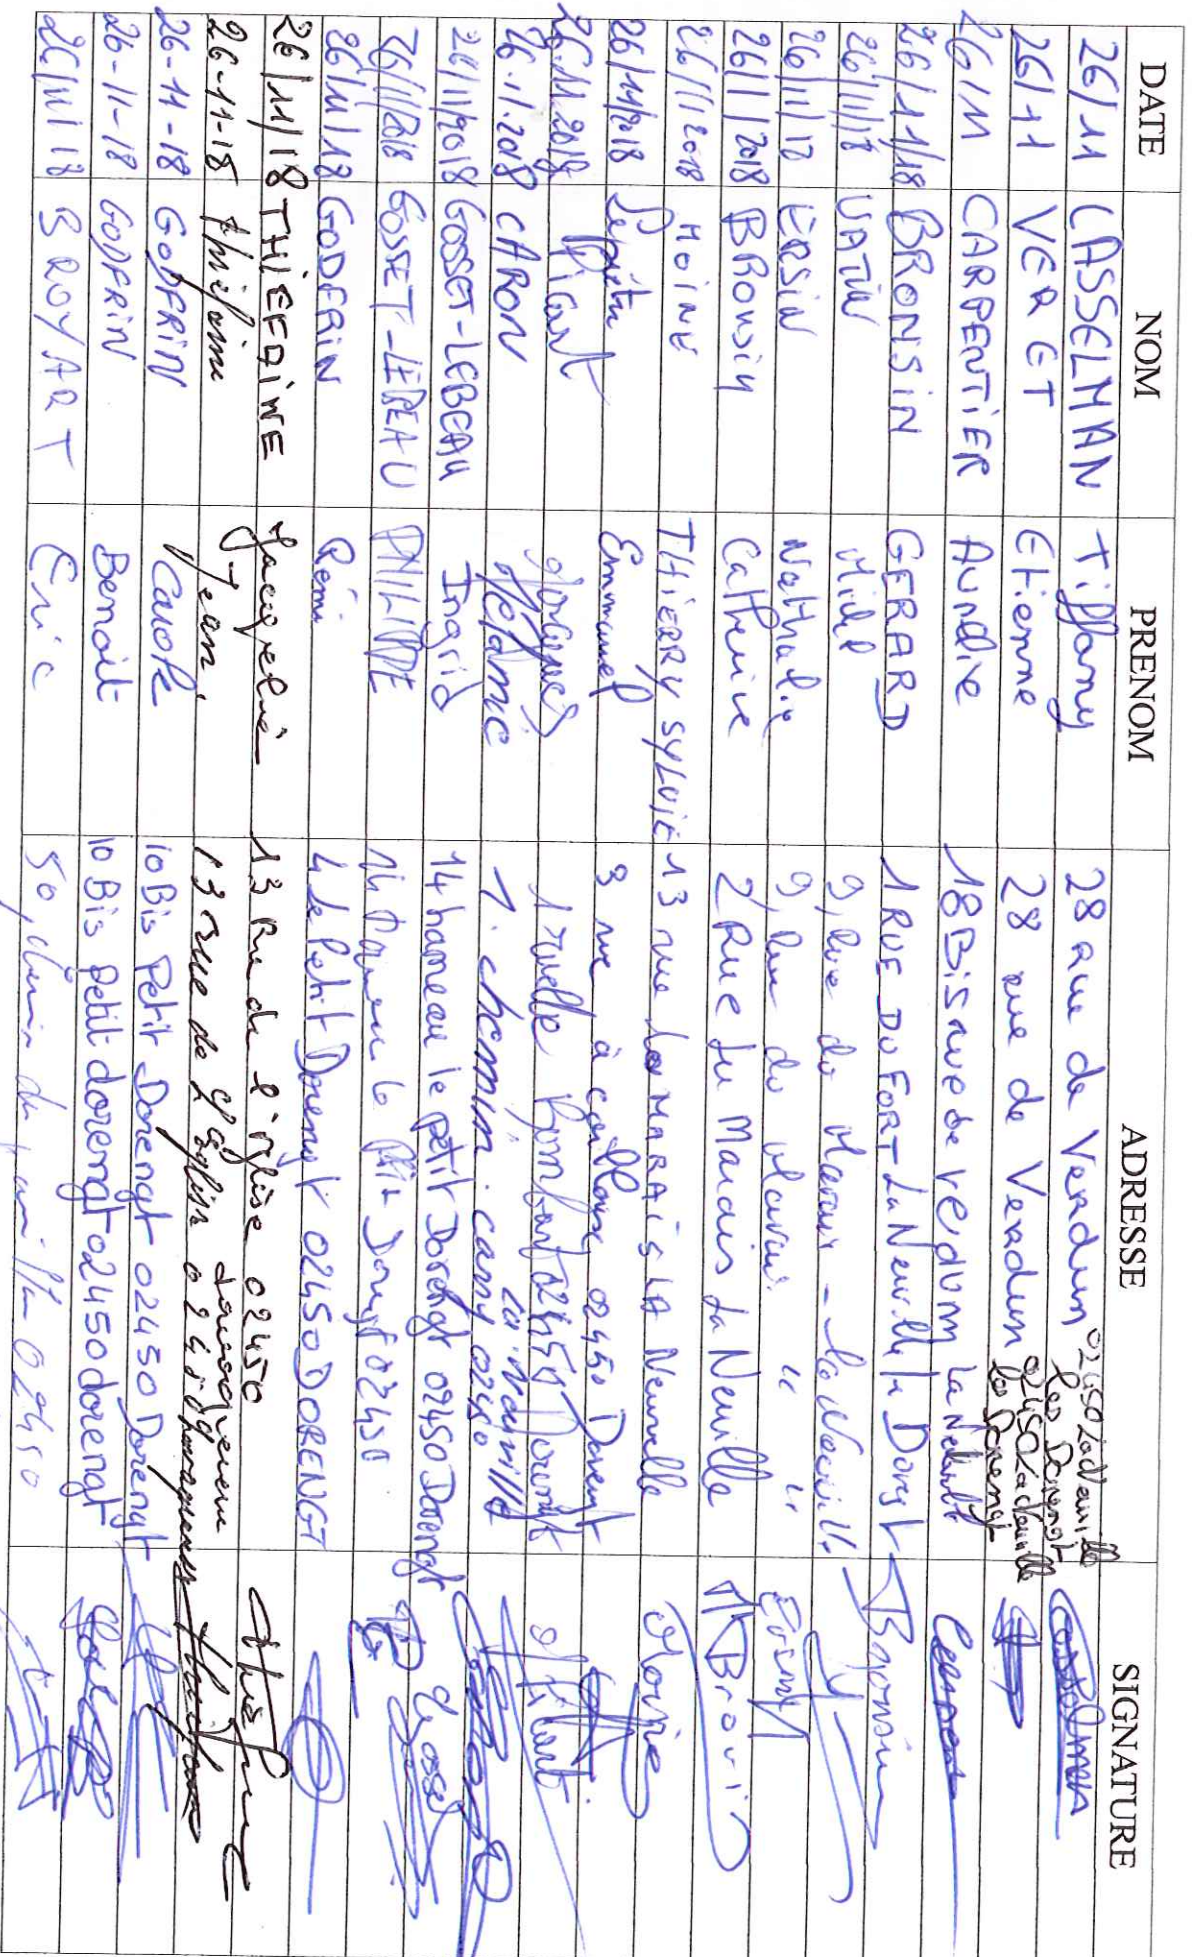 DATE NOM PRENOM ADRESSE SIGNATURE
26/11 CASSELMAN Tiffany 28 rue de Verdun 02450 La Neuville les Dorengt
26/11 VERGET Etienne 28 rue de Verdun 02450 La Neuville les Dorengt
26/11 CARPENTIER Aurélie 18 Bis rue de Verdunn La Neuville
26/11/18 BRONSIN GERARD 1 RUE DU FORT La Neuville le Dorengt Bronsin
26/11/18 VATIN 9, rue du Marais - La Neuville
26/11/18 ERSIN Nathalie 9, rue du Marais " "
26/11/2018 BRONSIN Catherine 2 Rue du Marais La Neuville
26/11/2018 MOINE THIERRY SYLVIE 13 rue les MARAIS LA Neuville
26/11/2018 Emmanuel 3 rue à cailloux 02450 Dorengt
26.11.2018 1 ruelle 02450 Dorengt
26.11.2018 CARON Mélanie 1. chemin. 02450
26/11/2018 GOSSET-LEBEAU Ingrid 14 hameau le petit Dorengt 02450 Dorengt
26/11/2018 GOSSET-LEBEAU PHILIPPE 14 hameau le Petit Dorengt 02450
26/11/18 GODFRIN Rémi 4 le Petit Dorengt 02450 DORENGT
26/11/18 THIEFAINE Jacqueline 13 Ru de l'église 02450
26-11-18 thiefaine Jean. 13 rue de l'église 02450
26-11-18 GODFRIN Carole 10 Bis Petit Dorengt 02450 Dorengt
26-11-18 GODFRIN Benoit 10 Bis petit dorengt 02450 dorengt
26/11/18 BROYART Eric 50, chemin de 02450